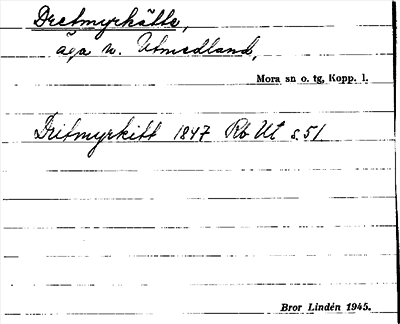 Dretmyrkätte,
äga n. Utmedland,
Mora sn o. tg, Kopp. l.
Dritmyrkitt 1847 Rb Ut s. 51
Bror Lindén 1945.